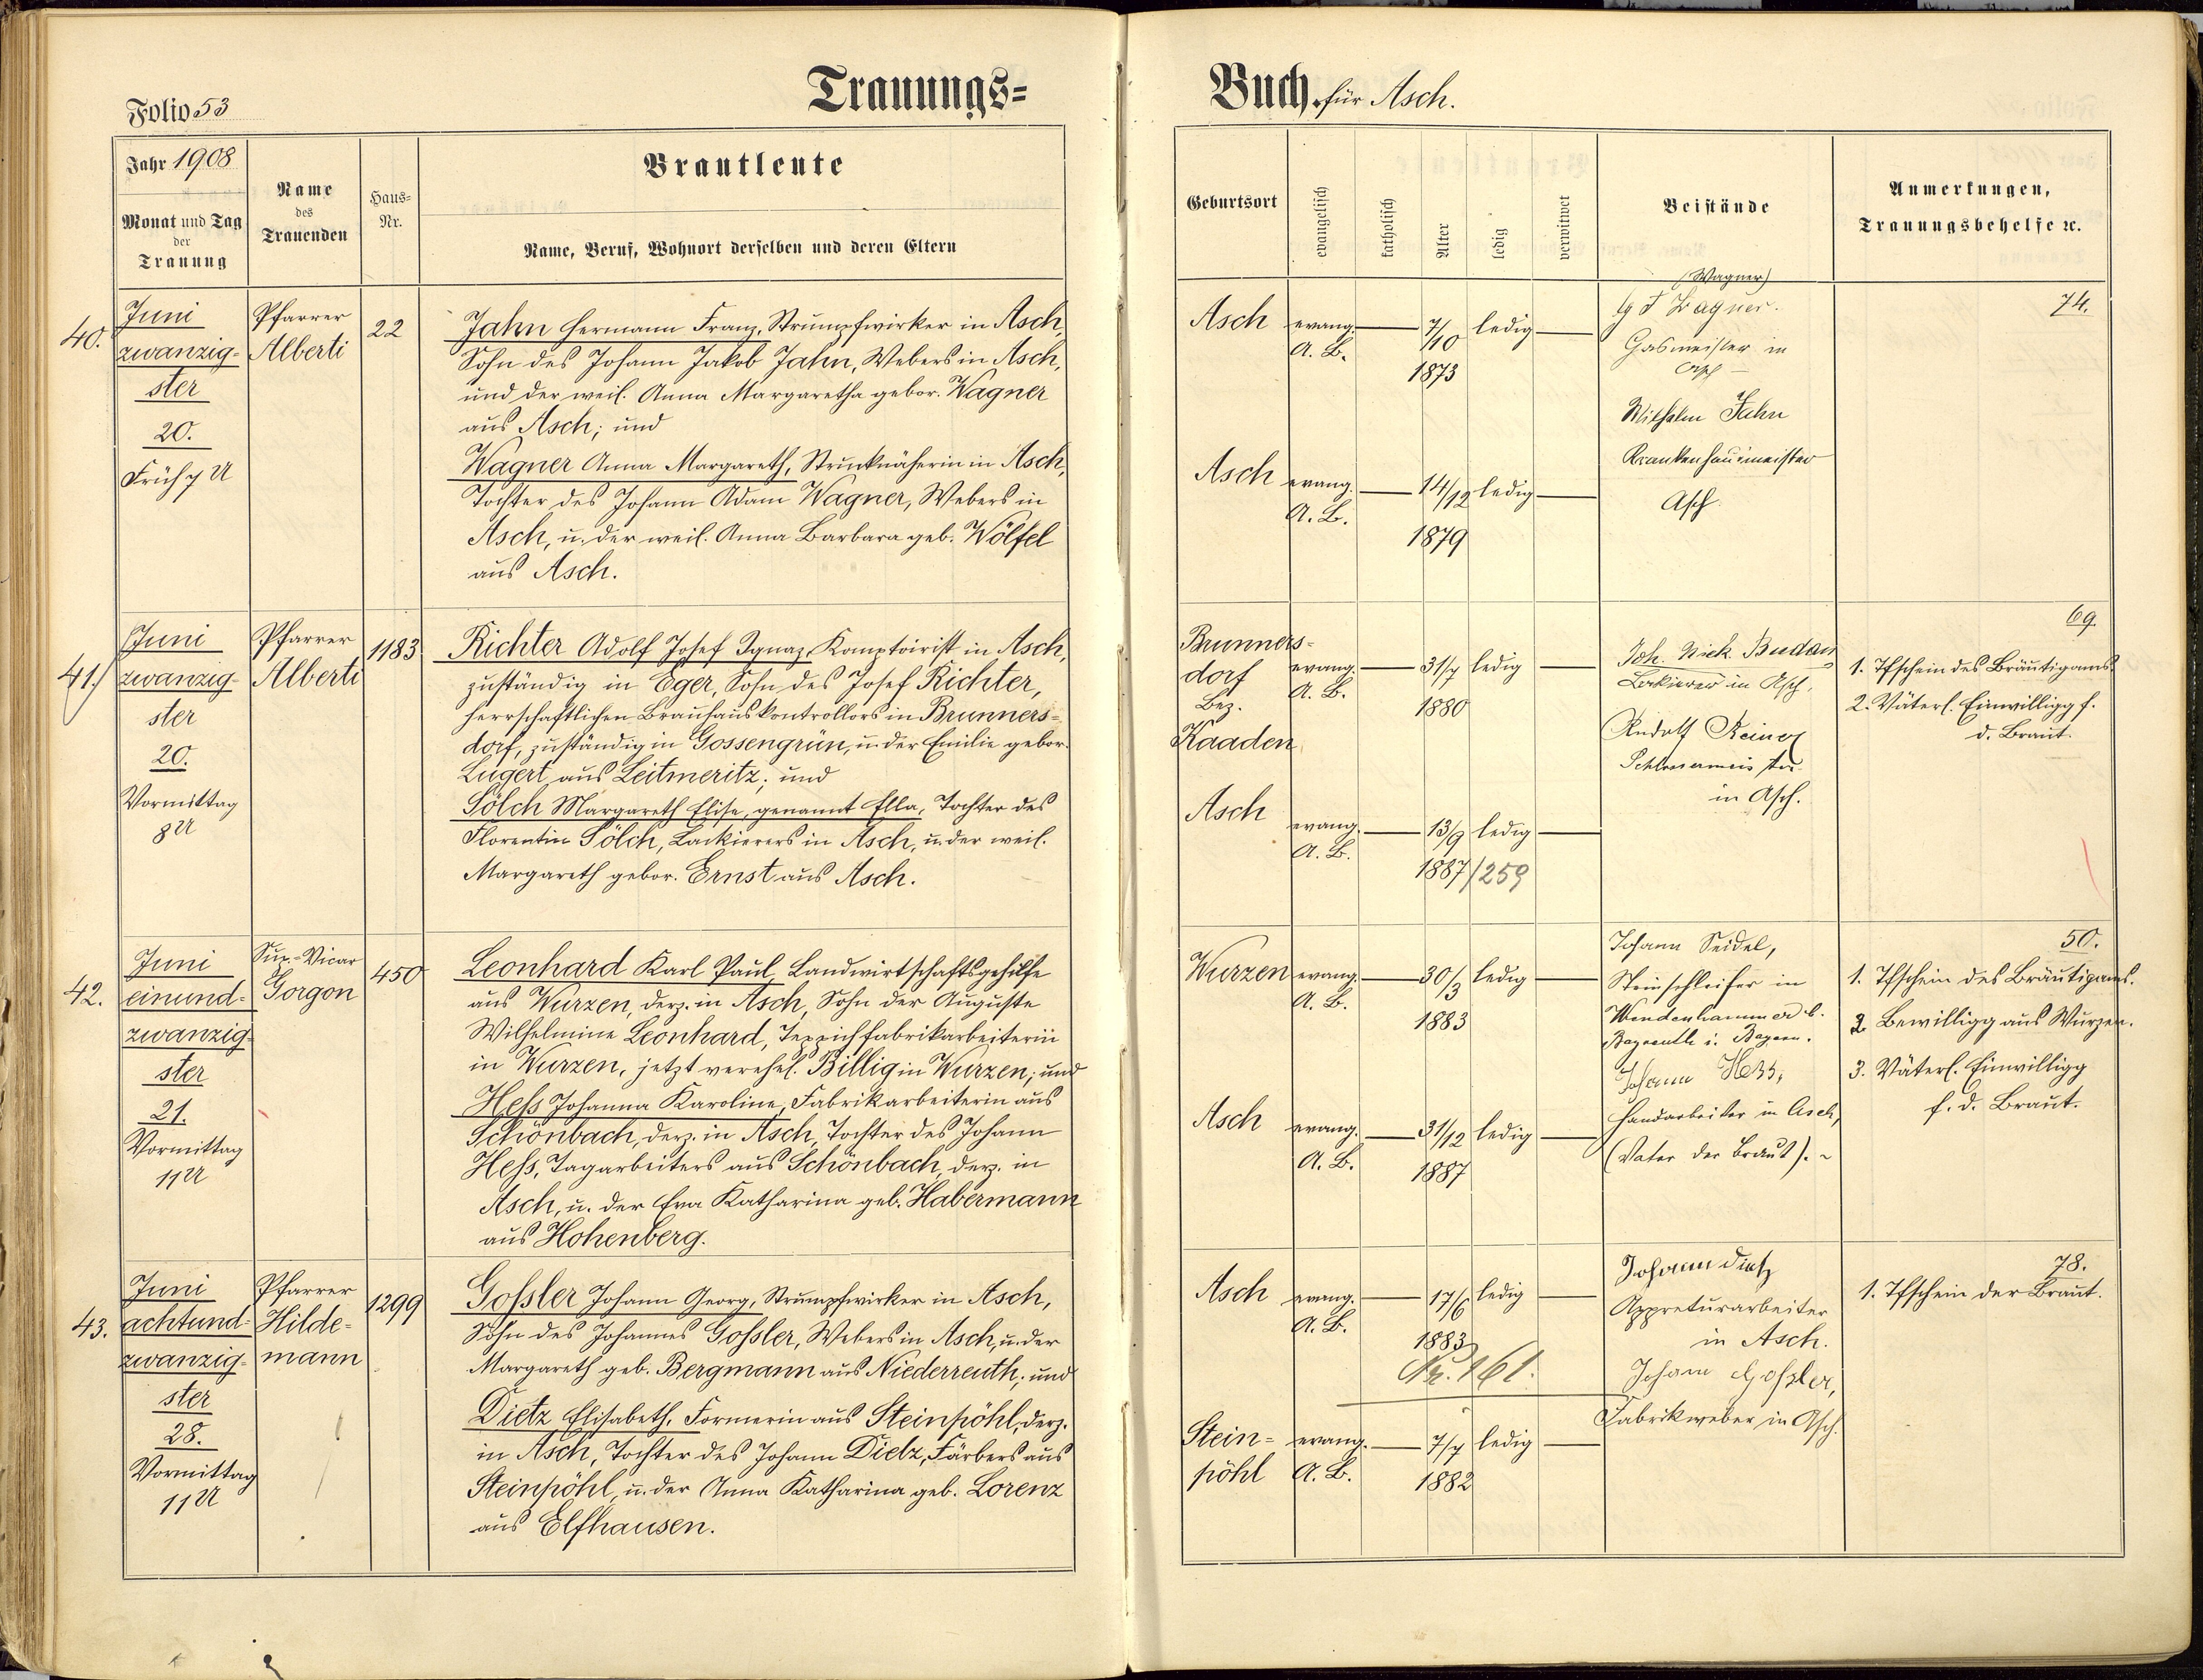 Folio 53
Trauungs=
Jahr 1908
Monat und Tag
der
Trauung
Name
des
Trauenden
Haus=
Nr.
Brautleute
Name, Beruf, Wohnort derselben und deren Eltern
40.
Juni
zwanzig=
ster
20.
Früh 7 U
Pfarrer
Alberti
22
Jahn Hermann Franz, Strumpfwirker in Asch,
Sohn des Johann Jakob Jahn, Webers in Asch,
und der weil. Anna Margaretha gebor. Wagner
aus Asch; und
Wagner Anna Margareth, Strucknäherin in Asch,
Tochter des Johann Adam Wagner, Webers in
Asch, u. der weil. Anna Barbara geb. Wölfel
aus Asch.
41.
Juni
zwanzig=
ster
20.
Vormittag
8 U
Pfarrer
Alberti
1183
Richter Adolf Josef Ignaz, Komptoirist in Asch,
zuständig in Eger, Sohn des Josef Richter,
herrschaftlichen Brauhauskontrollors in Brunners=
dorf, zuständig in Gossengrün, u. der Emilie gebor.
Lugert aus Leitmeritz; und
Sölch Margareth Elise, genannt Ella, Tochter des
Florentin Sölch, Lackierers in Asch, u. der weil.
Margareth gebor. Ernst aus Asch.
42.
Juni
einund=
zwanzig=
ster
21.
Vormittag
11 U
Sup.-Vicar
Gorgon
450
Leonhard Karl Paul, Landwirtschaftsgehilfe
aus Wurzen, derz. in Asch, Sohn der Auguste
Wilhelmine Leonhard, Teppichfabrikarbeiterin
in Wurzen, jetzt verehel. Billig in Wurzen; und
Heß Johanna Karoline, Fabrikarbeiterin aus
Schönbach, derz. in Asch, Tochter des Johann
Heß, Tagarbeiters aus Schönbach, derz. in
Asch, u. der Eva Katharina geb. Habermann
aus Hohenberg.
43.
Juni
achtund=
zwanzig=
ster
28.
Vormittag
11 U
Pfarrer
Hilde=
mann
1299
Goßler Johann Georg, Strumpfwirker in Asch,
Sohn des Johannes Goßler, Webers in Asch, u. der
Margareth geb. Bergmann aus Niederreuth; und
Dietz Elisabeth, Formerin aus Steinpöhl, derz.
in Asch, Tochter des Johann Dietz, Färbers aus
Steinpöhl, u. der Anna Katharina geb. Lorenz
aus Elfhausen.
Buch für Asch.
Geburtsort
evangelisch
katholisch
Alter
ledig
verwitwet
Beistände
Anmerkungen,
Trauungsbehelfe ꝛc.
Asch
evang.
A. B.
7/10
1873
ledig
(Wagner)
Wagner.
Gasmeister in
Asch
Wilhelm Jahn
Krankenhausmeister
Asch
74.
Asch
evang.
A. B.
14/12
1879
ledig
Brunners=
dorf
Bez.
Kaaden
evang.
A. B.
31/7
1880
ledig
Joh. Nick. Budan
Lackierer in Asch,
Rudolf
Schlossermeister
in Asch.
69.
1. Tfschein des Bräutigams
2. Väterl. Einwilligg f.
d. Braut.
Asch
evang.
A. B.
13/9
1887/259
ledig
Wurzen
evang.
A. B.
30/3
1883
ledig
Johann Seidel,
Steinschleifer in
Wendenhammer b.
Bayreuth i. Bayern.
Johann Hess,
Handarbeiter in Asch,
(Vater der Braut).
50.
1. Tfschein des Bräutigams.
2. Bewilligg aus Wurzen.
3. Väterl. Einwilligg
f. d. Braut.
Asch
evang.
A. B.
31/12
1887
ledig
Asch
evang.
A. B.
17/6
1883
Nr. 161.
ledig
Johann Dietz
Appreturarbeiter
in Asch.
Johann Goßler,
Fabrikweber in Asch.
78.
1. Tfschein der Braut.
Stein=
pöhl
evang.
A. B.
7/7
1882
ledig